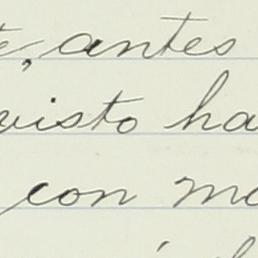 , antes
visto ha
con m